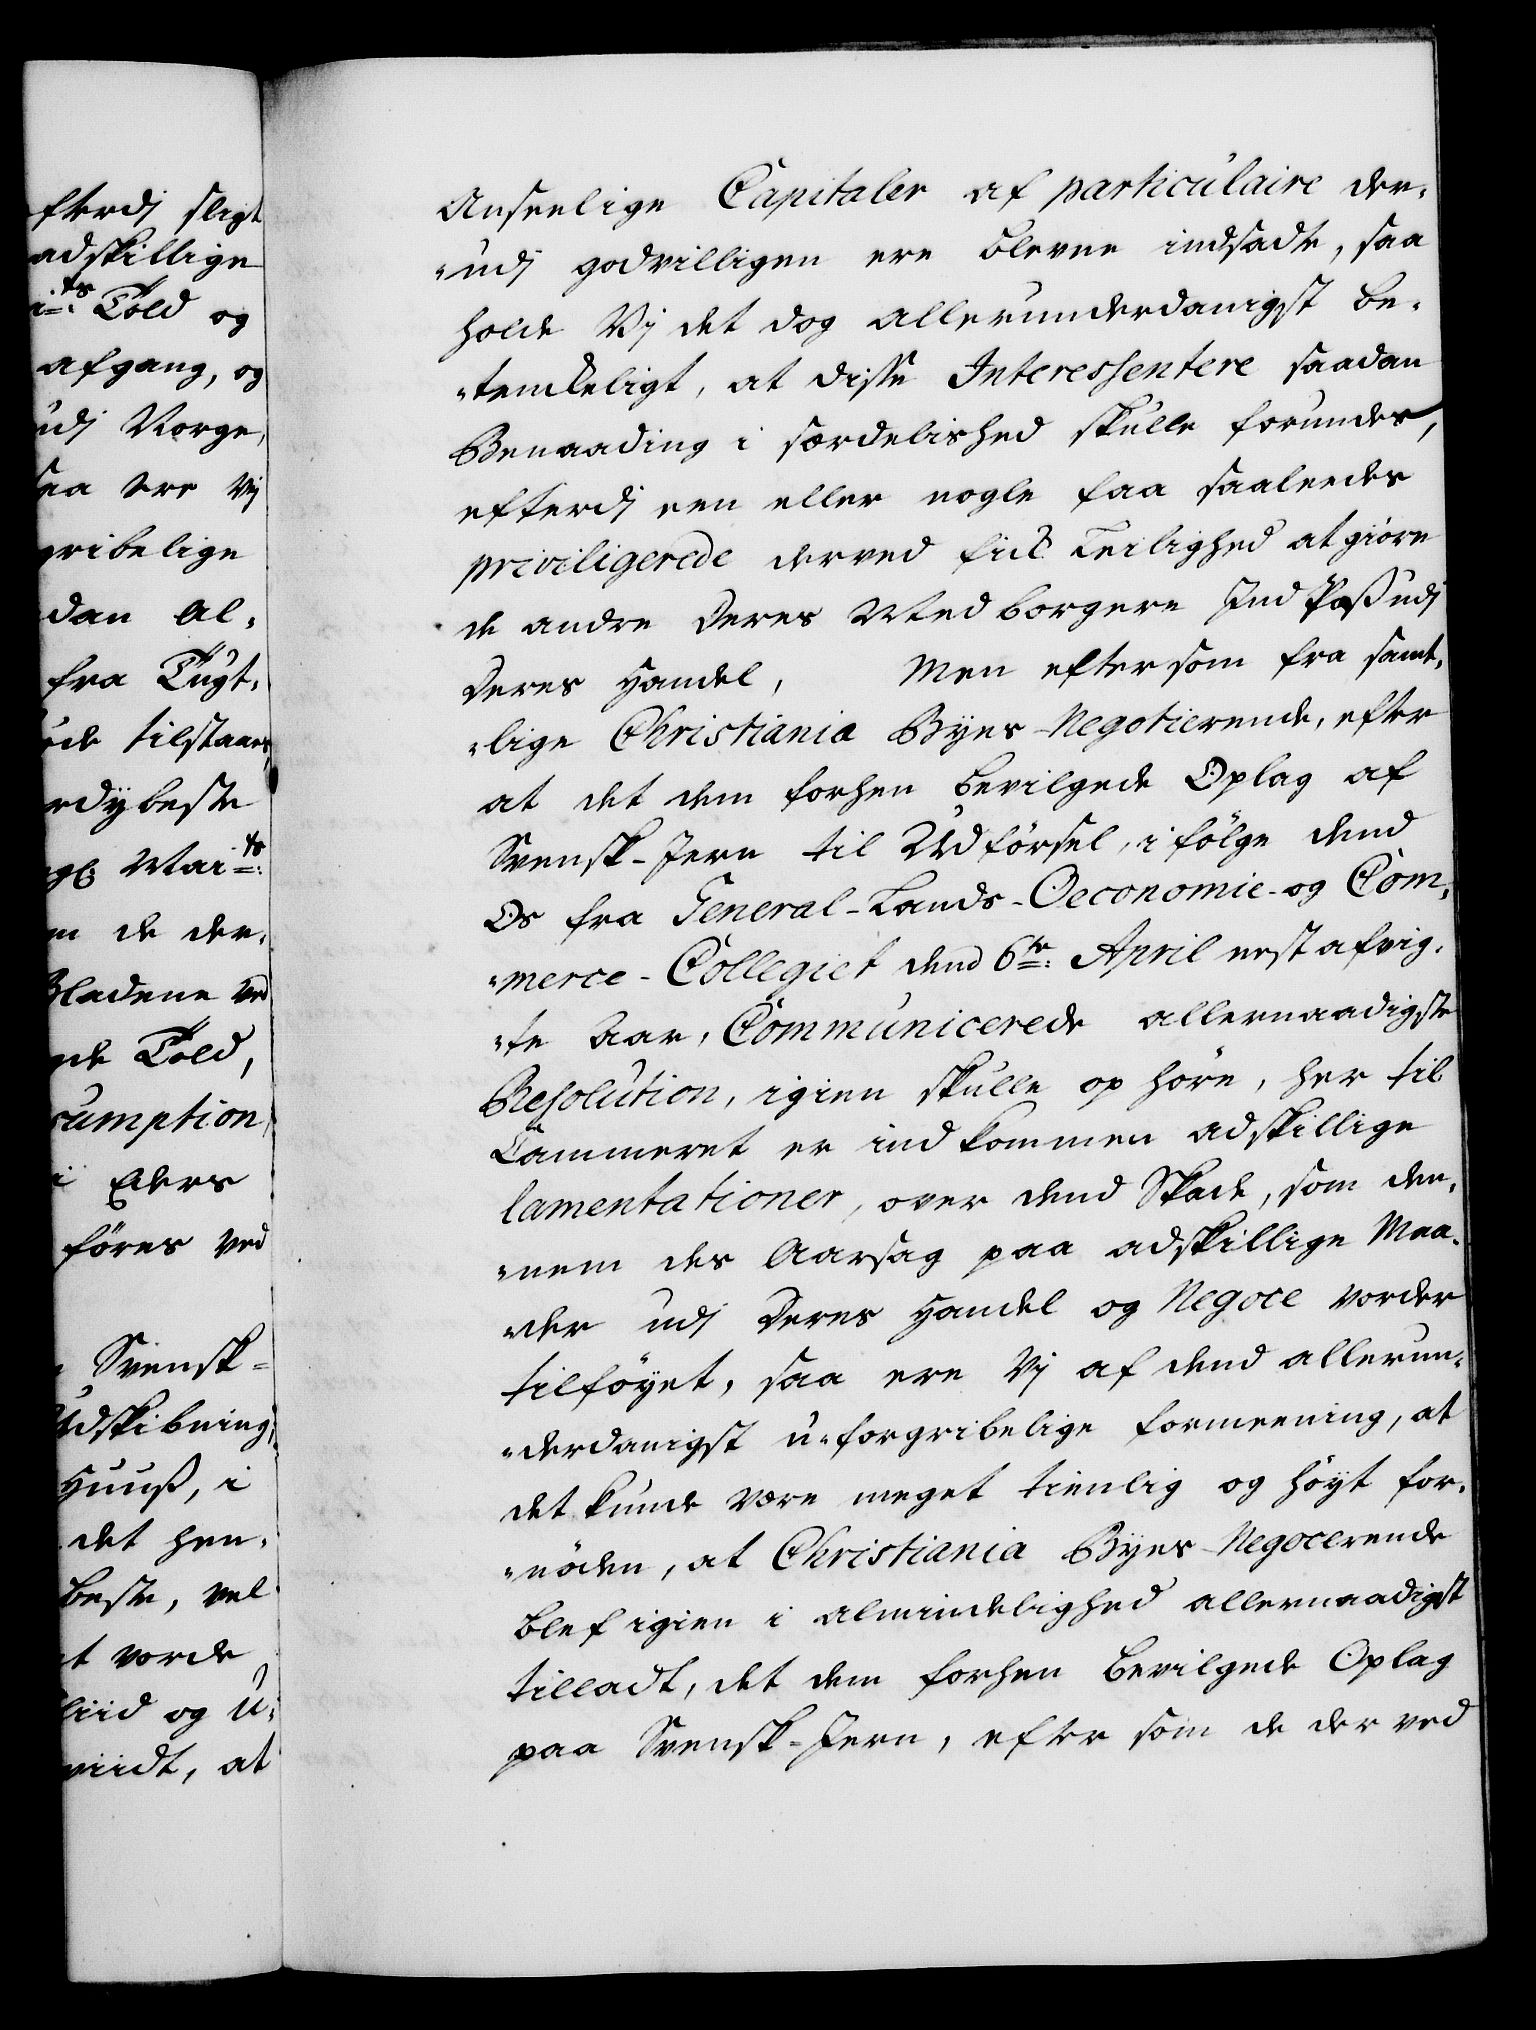 fterdj sligt
adskillige
i=ts: Told og
afgang, og
udj Norge,
saa ere Vj
gribelige
dan Al-
fra Tugt-
ede tilstaaes,
rdybeste
gl: Mai=ts:
m de der-
Bladene ved
nde Told,
sumption,
i Eders
føres ved
Svensk-
Udskibning,
Huuß, i
det hen-
beste, vel
t vorde
liid og U-
viidt, at
Anseelige Capitaler af particulaire der-
-udj godvilligen ere blevne indsadte, saa
holde Vj det dog allerunderdanigst be-
-tenckeligt, at disse Interessentere saadan
Benaading i særdelished skulle forundes,
efterdj een eller nogle faa saaleedes
priviligerede derved fick Leilighed at giøre
de andre Deres Medborgere Ind Paß udj
Deres Handel, Men eftersom fra samt-
-lige Christiania Byes Negotierende, efter
at det dem forhen bevilgede Oplag af
Svensk-Jern til Udførsel, i følge dend
Os fra General-Lands-Oeconomie-og Com-
-merce-Collegiet dend 6te: April nest afvig-
-te Aar, Communicerede allernaadigste
Resolution, igien skulle ophøre, her til
Cammeret er indkommen adskillige
lamentationer, over dend Skade, som den-
-nem des Aarsag paa adskillige Maa-
-der udj Deres Handel og Negoce vorder
tilføyet, saa ere Vj af dend allerun-
-derdanigst u-forgribelige formeening, at
det kunde være meget tienlig og høyt for-
-nøden, at Christiania Byes Negocerende
blef igien i almindelighed allernaadigst
tilladt, det dem forhen bevilgede Oplag
paa Svensk-Jern, efter som de der ved